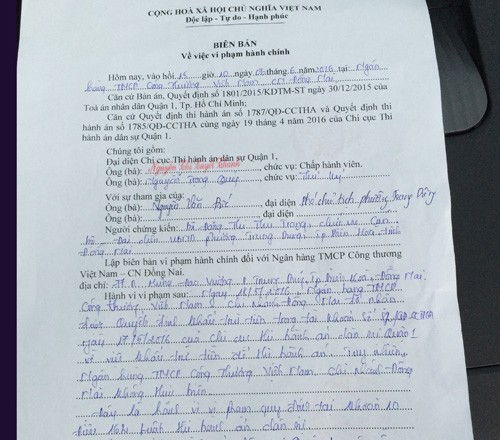 CỘNG HOÀ XÃ HỘI CHỦ NGHĨA VIỆT NAM
Độc lập - Tự do - Hạnh phúc
BIÊN BẢN
Về việc vi phạm hành chính
Hôm nay, vào hồi 15 giờ 10 ngày 06 tháng 6 năm 2016, tại: Ngân
hàng TMCP Công Thương Việt Nam CN Đồng Nai
Căn cứ Bản án, Quyết định số 1801/2015/KDTM-ST ngày 30/12/2015 của
Toà án nhân dân Quận 1, Tp. Hồ Chí Minh;
Căn cứ Quyết định thi hành án số 1787/QĐ-CCTHA và Quyết định thi
hành án số 1785/QĐ-CCTHA cùng ngày 19 tháng 4 năm 2016 của Chi cục Thi
hành án dân sự Quận 1.
Chúng tôi gồm:
Đại diện Chi cục Thi hành án dân sự Quận 1,
Ông (bà): Nguyễn Thị Tuyết, chức vụ: Chấp hành viên.
Ông (bà): Nguyễn Trọng Quy, chức vụ: Thư ký
Với sự tham gia của:
Ông (bà): Nguyễn Văn đại diện Phó chủ tịch phường Trung Dũng
Ông (bà): đại diện
Người chứng kiến: Đại diện UBND phường Trung Dũng, Tp Biên Hoà, tỉnh
Đồng Nai
Lập biên bản vi phạm hành chính đối với Ngân hàng TMCP Công thương
Việt Nam – CN Đồng Nai.
địa chỉ: Hùng Vương, P. Trung Dũng, Tp Biên Hoà, Đồng Nai
Hành vi vi phạm sau: Ngày 2016, Ngân hàng TMCP
Công Thương Việt Nam Chi nhánh Đồng Nai đã nhận
được Quyết định khấu trừ tiền trong tài khoản số
ngày 2016 của chi cục thi hành án dân sự Quận 1
về việc khấu trừ tiền để thi hành án. Tuy nhiên,
Ngân hàng TMCP Công Thương Việt Nam Chi nhánh Đồng
Nai không thực hiện.
Đây là hành vi vi phạm quy định tại khoản 10
điều luật thi hành án dân sự.